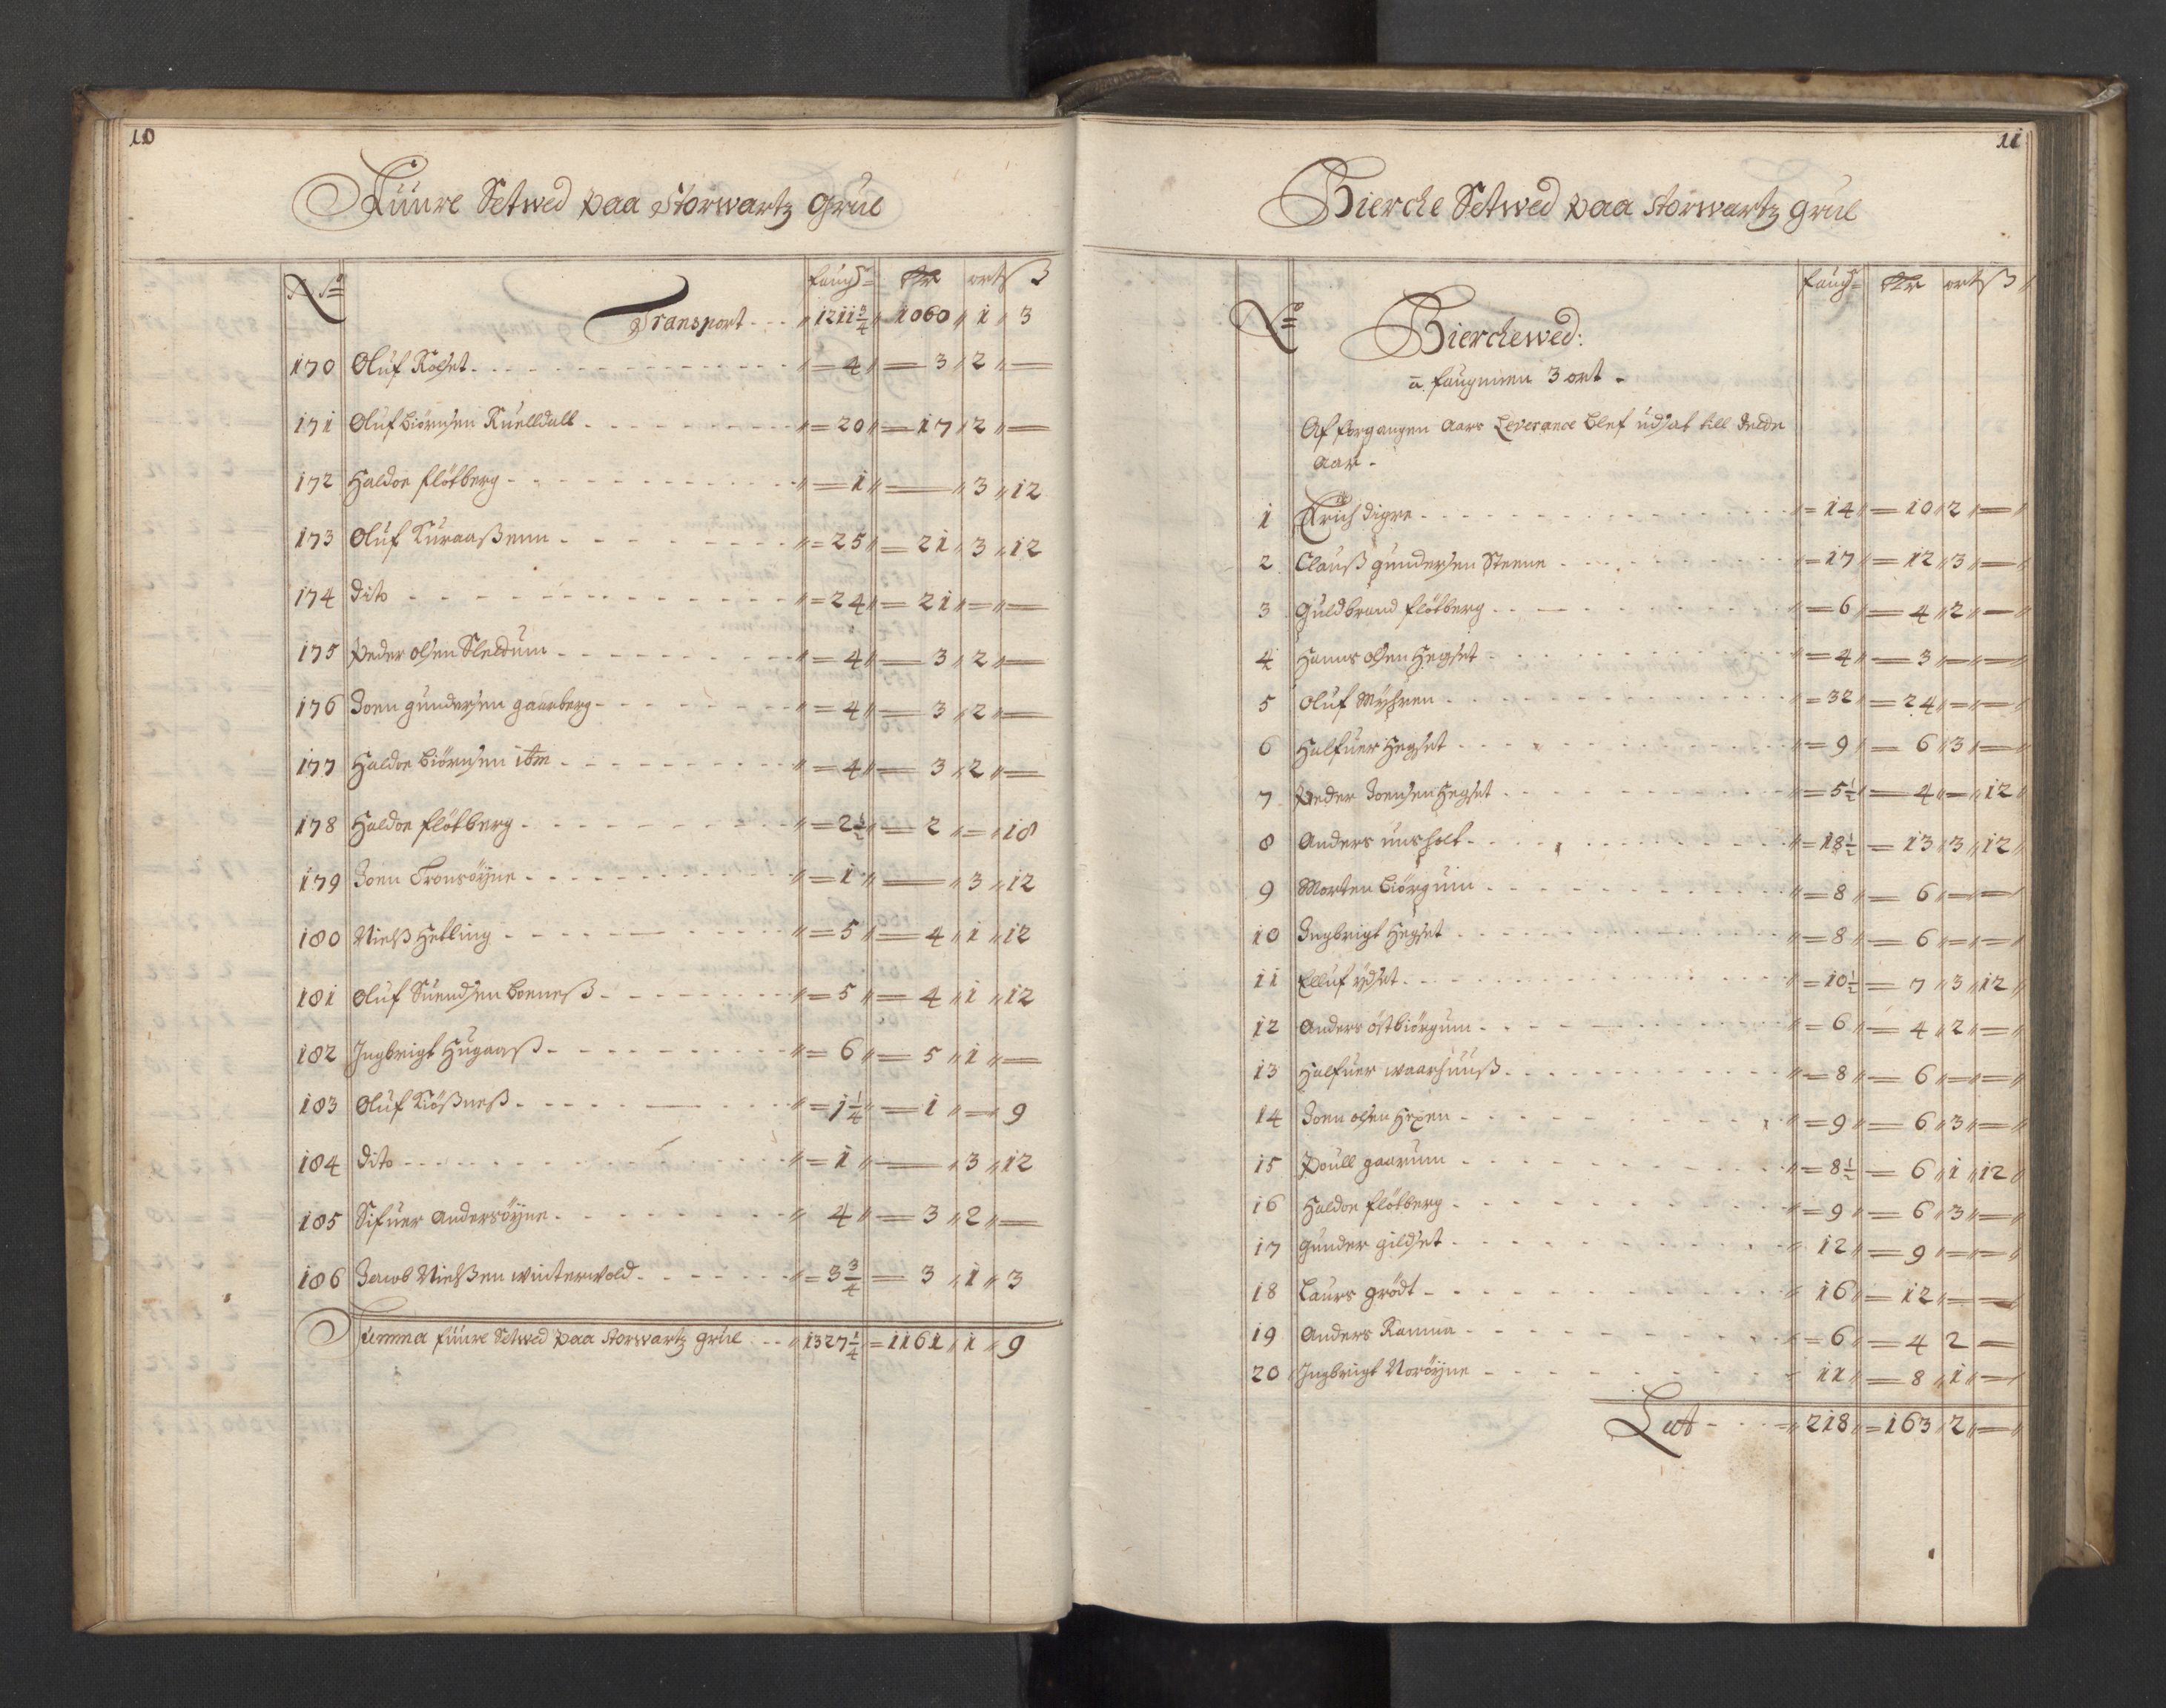 10
Fuure Setwed paa Storwartz Grue
No faugn Rdr ort ß
Transport 1211 3/4 1060 1 3
170 Oluf Rolset 4 3 2 —
171 Oluf Biörnsen Kuelldall 20 17 2 —
172 Haldor flötberg 1 — 3 12
173 Oluf Kuraaßenn 25 21 3 12
174 dito 24 21 — —
175 Peder olsen Slettum 4 3 2 —
176 Joen gundersen gaarberg 4 3 2 —
177 Haldor Biörnsen itm 4 3 2 —
178 Haldor flötberg 2 1/2 2 — 18
179 Joen Tronsöyne 1 — 3 12
180 Nielß Hetling 5 4 1 12
181 Oluf Suendsen Boeneß 5 4 1 12
182 Ingbrigt Hugaaß 6 5 1 —
183 Oluf Kiößneß 1 1/4 1 — 9
184 dito 1 — 3 12
185 Sifuer Andersöyne 4 3 2 —
186 Jacob Nielßen winterwold 3 3/4 3 1 3
Summa fuure Setwed paa Storwartz grue 1327 1/4 1161 1 9
11
Bierche Setwed paa Storwartz grue
No faugn Rdr ort ß
Bierchewed:
a faugnen 3 ort
Af forgangen Aars Leverance blef udsat till dette
Aar
1 Erich digre 14 10 2 —
2 Clauß gundersen Steene 17 12 3 —
3 Guldbrand flötberg 6 4 2 —
4 Hanns olsen Hegset 4 3 — —
5 Oluf Myhren 32 24 — —
6 Halfuer Hegset 9 6 3 —
7 Peder Joensen Hegset 5 1/2 4 — 12
8 Anders unsholt 18 1/2 13 3 12
9 Morten Biörgum 8 6 — —
10 Ingbrigt Hegset 8 6 — —
11 Elluf ydset 10 1/2 7 3 12
12 Anders östbiörgum 6 4 2 —
13 Halfuer waarhuuß 8 6 — —
14 Joen olsen Hexen 9 6 3 —
15 Poull gaarum 8 1/2 6 1 12
16 Haldor flötberg 9 6 3 —
17 gunder gildset 12 9 — —
18 Laurs grödt 16 12 — —
19 Anders Ramna 6 4 2 —
20 Ingbrigt Noröyne 11 8 1 —
Lat 218 163 2 —